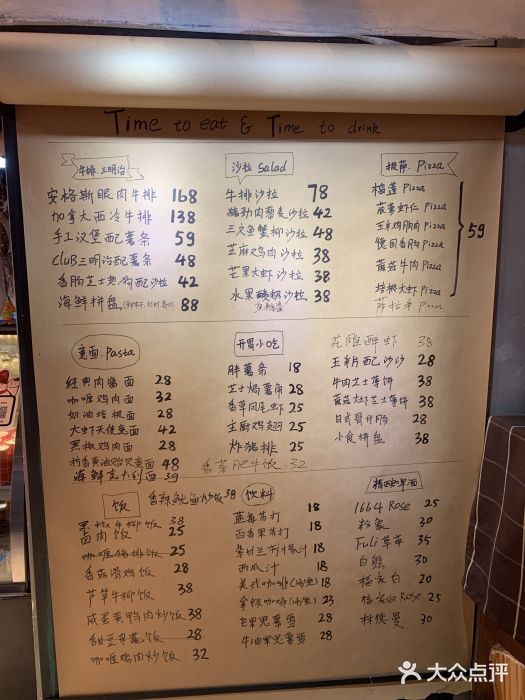 Time to eat & Time to drink
牛排.三明治
安格斯眼肉牛排 168
加拿大西冷牛排 138
手工汉堡配薯条 59
CluB三明治配薯条 48
香肠芝士热狗配沙拉 42
海鲜拼盘 88
沙拉 Salad
牛排沙拉 78
猪颈肉藜麦沙拉 42
三文鱼蟹柳沙拉 48
芝麻鸡肉沙拉 38
芒果大虾沙拉 38
水果酸奶沙拉 38
披萨. Pizza
榴莲 Pizza
菠萝虾仁 Pizza
玉米鸡肉 Pizza
德国香肠 Pizza
蘑菇牛肉 Pizza
培根大虾 Pizza
萨拉米 Pizza
59
意面.Pasta
经典肉酱面 28
咖喱鸡肉面 32
奶油培根面 28
大虾天使意面 42
黑椒鸡肉面 28
柠香黄油三文鱼意面 48
海鲜意大利面 39
开胃小吃
胖薯条 18
芝士焗薯角 28
香草凤尾虾 25
主厨鸡翅 25
炸猪排 25
香菜肥牛饭 32
花雕醉虾 38
玉米片配沙沙 28
牛肉芝士薄饼 38
蘑菇大虾芝士薄饼 38
日式蜀什锦 28
小食拼盘 38
饭
香辣鱿鱼炒饭 38
黑椒牛柳饭 38
卤肉饭 25
咖喱猪排饭 25
香菇滑鸡饭 28
芦笋牛柳饭 38
咸蛋黄鸭肉炒饭 38
甜豆 饭 28
咖喱鸡肉炒饭 32
饮料
蓝莓苏打 18
百香果苏打 18
18
西瓜汁 18
美式咖啡(冰/热) 18
拿铁咖啡(冰/热) 23
芒果思慕雪 28
牛油果思慕雪 28
精酿啤酒
1664 Rose 25
粉象 30
Fuli草莓 35
白熊 30
福佳白 20
福佳白Rose 25
林德曼 30
大众点评